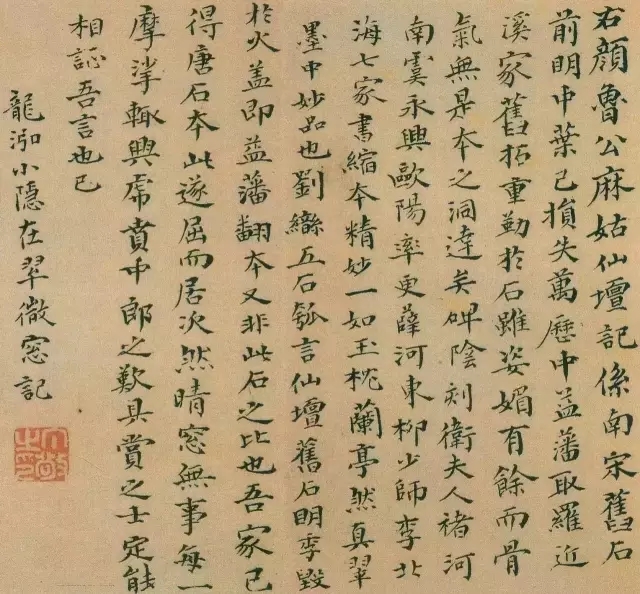 右顏魯公麻姑仙壇記係南宋舊石
前明中葉已損失萬曆中益藩取羅近
溪家舊拓重勒於石雖姿媚有餘而骨
氣無是本之洞達矣碑陰刻衛夫人褚河
南虞永興歐陽率更薛河東柳少師李北
海七家書縮本精妙一如玉枕蘭亭然真翠
墨中妙品也劉鑾五石瓠言仙壇舊石明季毀
於火蓋即益藩翻本又非此石之比也吾家已
得唐石本此遂屈而居次然晴窓無事每一
摩挲輒興虎賁中郎之歎具賞之士定能
相証吾言也已
龍泓小隱在翠微窓記
丁敬之印